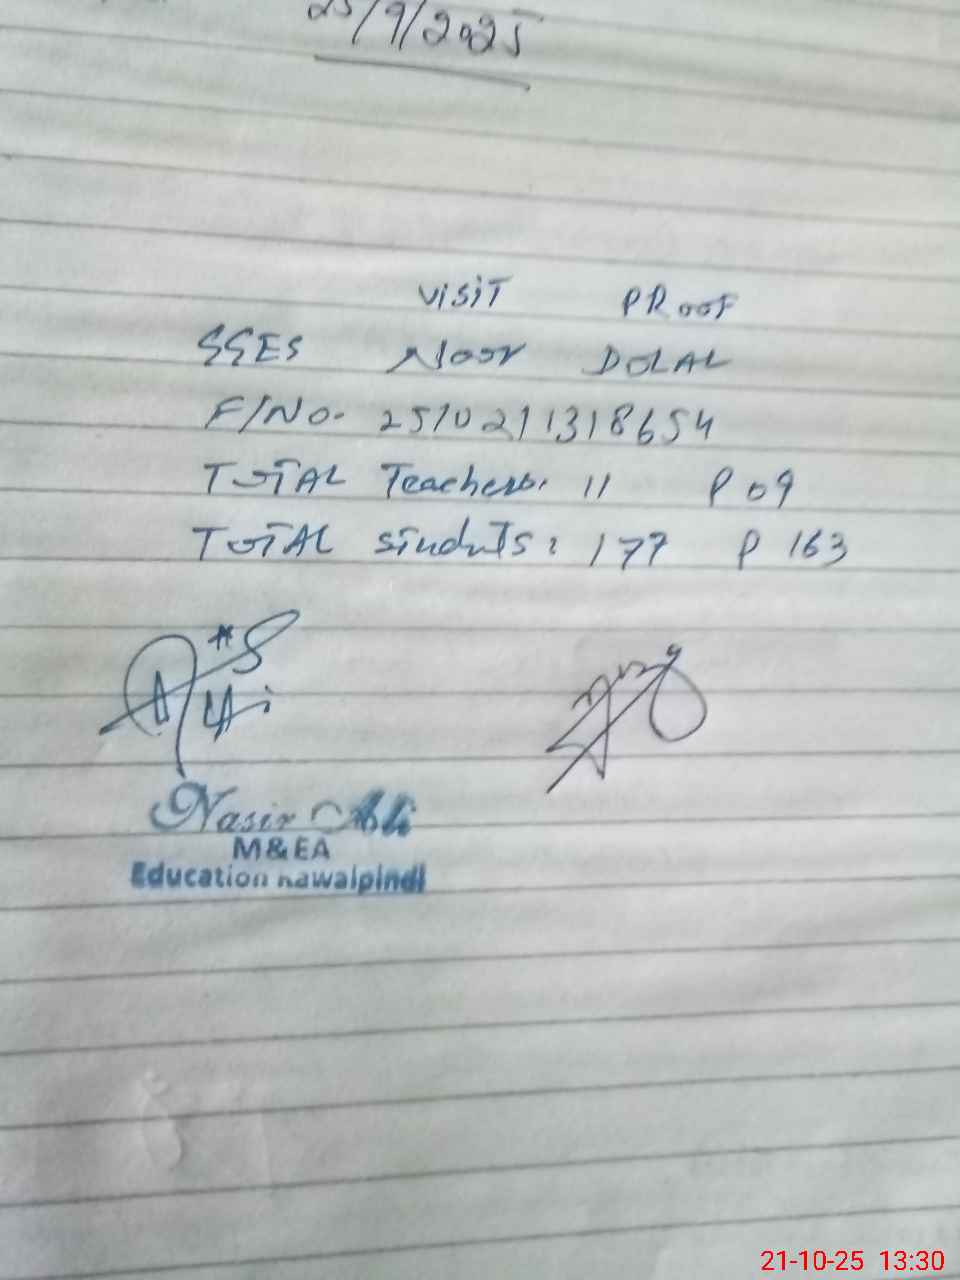 25/9/2025
VISIT PROOF
SGES Noor DOLAL
F/NO. 2510211318654
TOTAL Teachers. 11 P 09
TOTAL students: 177 P 163
Nasir Ali
M&EA
Education Rawalpindi
21-10-25 13:30